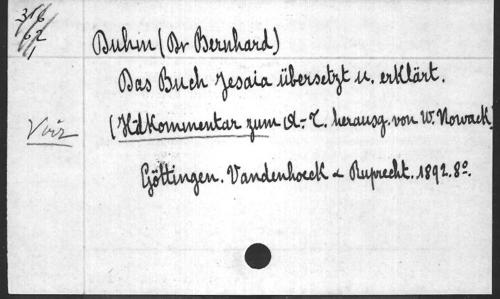 316
62
1
Duhm (Dr Bernhard)
Das Buch Jesaia übersetzt u. erklärt.
Voir
(Hdkommentar zum A.-T. herausg. von W. Nowack)
Göttingen. Vandenhoeck & Ruprecht. 1892. 8°.